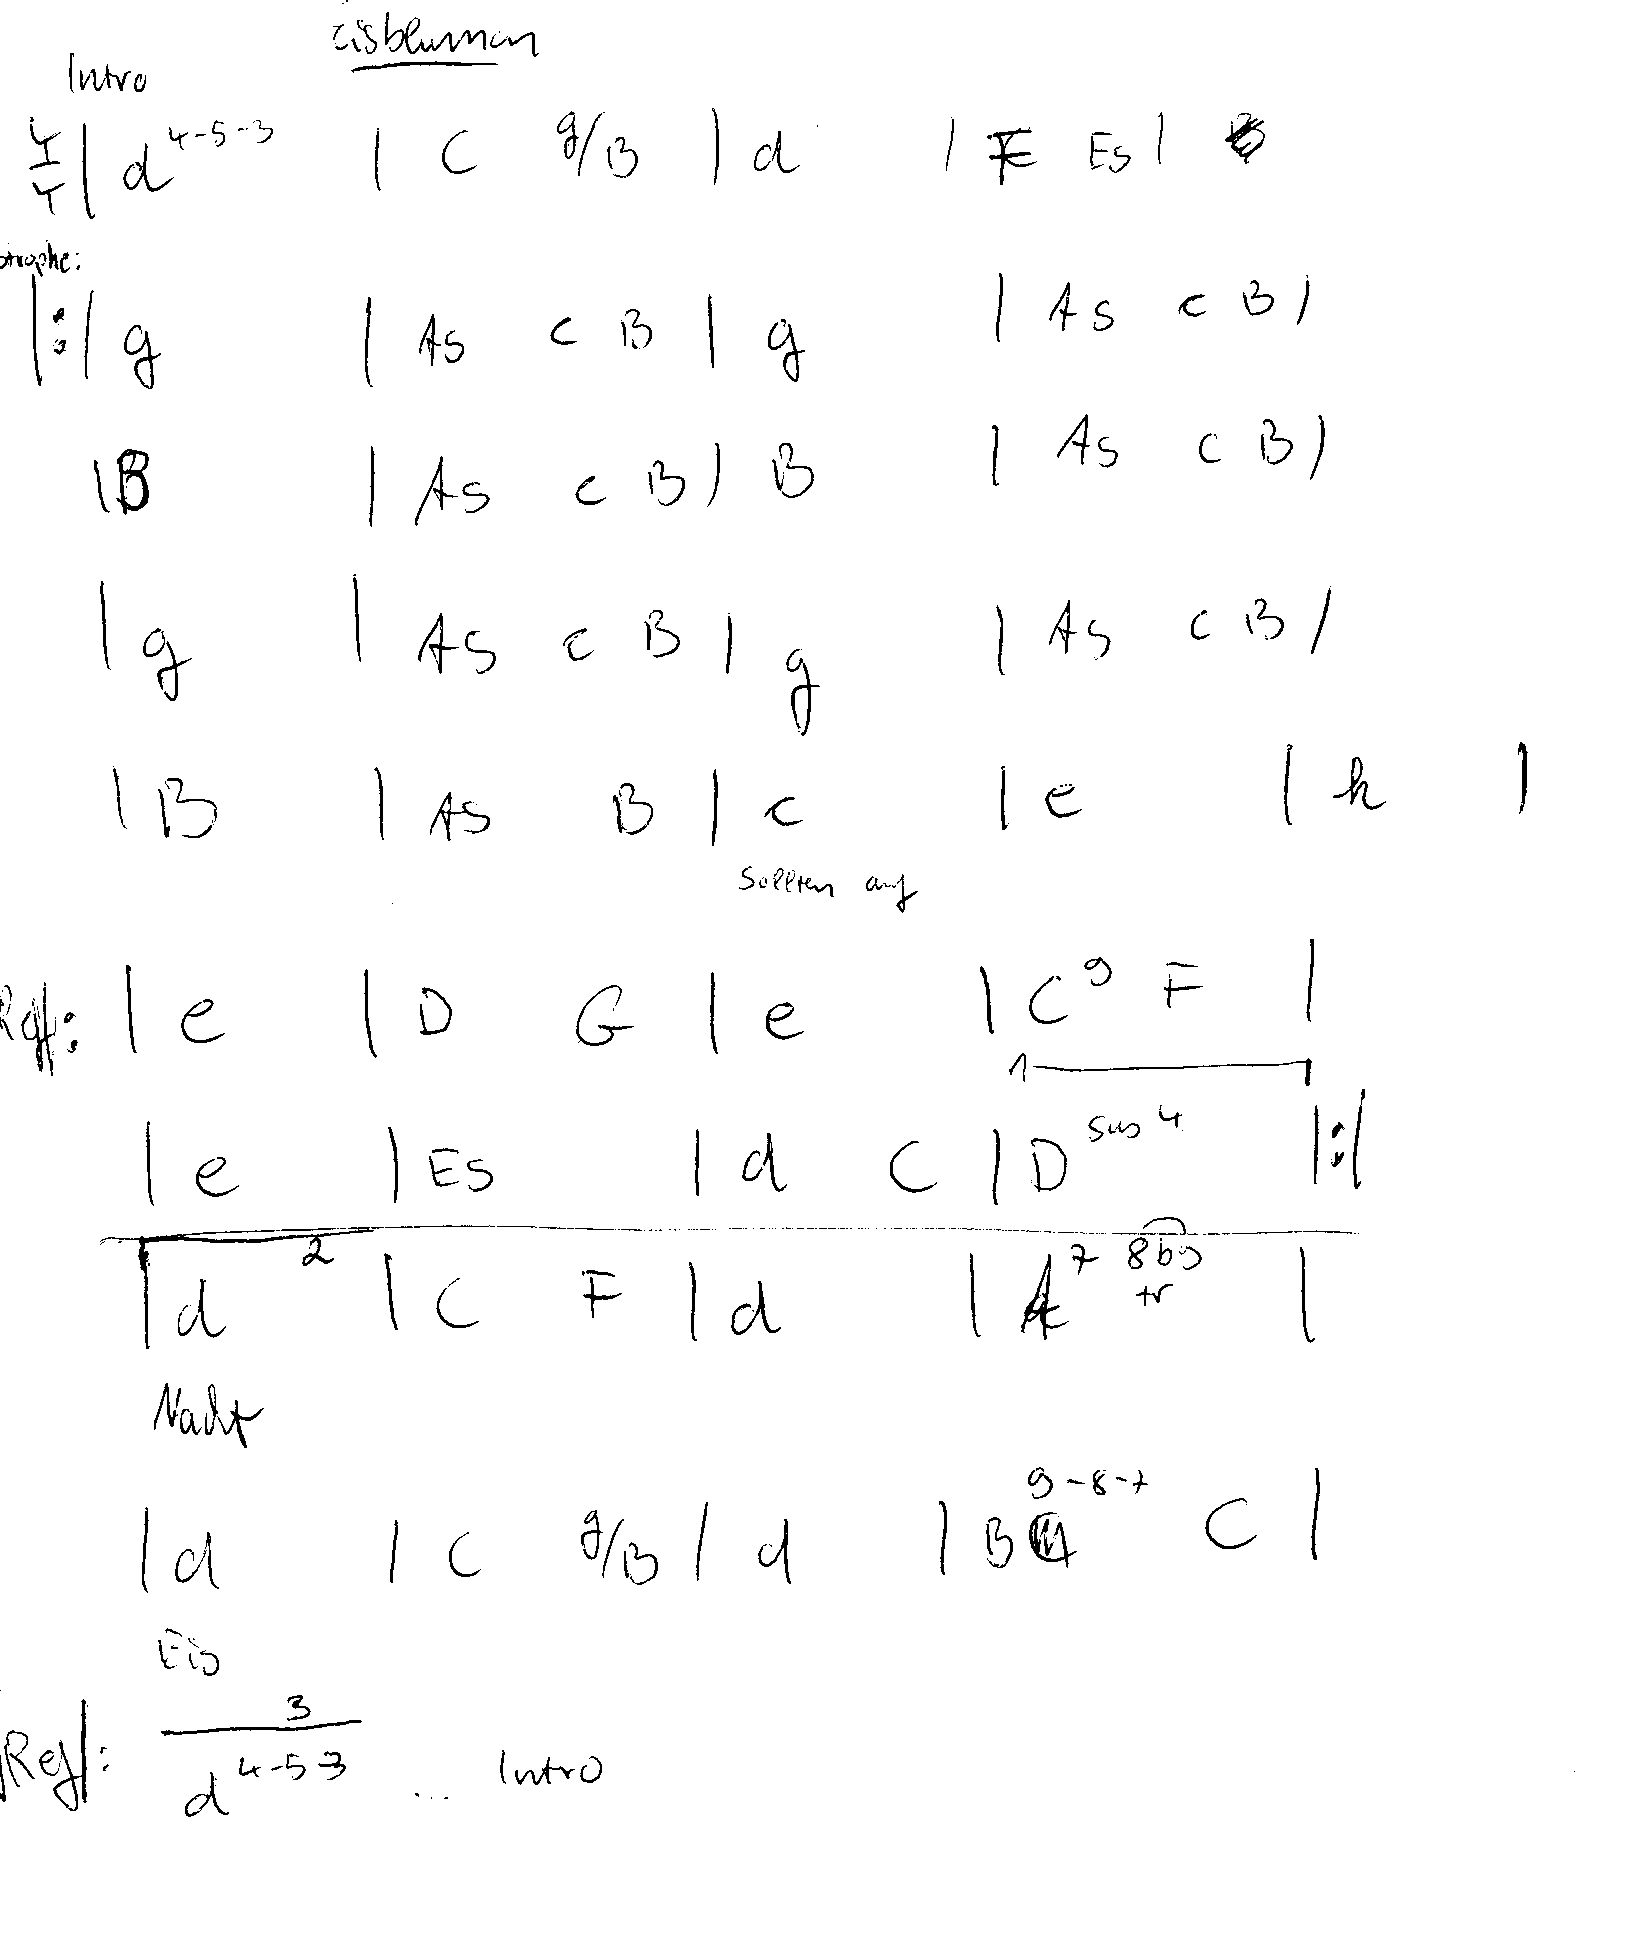 Eisblumen
Intro
4/4 | d 4-5-3 | C g/B | d | F Es |
strophe:
|:| g | As c B | g | As c B |
| B | As c B | B | As c B |
| g | As c B | g | As c B |
| B | As B | c | e | h |
sollten auf
Refr: | e | D G | e | C9 F |
1
| e | Es | d C | D sus4 |:|
2
| d | C F | d | A7 8b9 tr |
Nacht
9-8-7
| d | C g/B | d | B C |
Eis
3
Refr: d 4-5-3 ... Intro